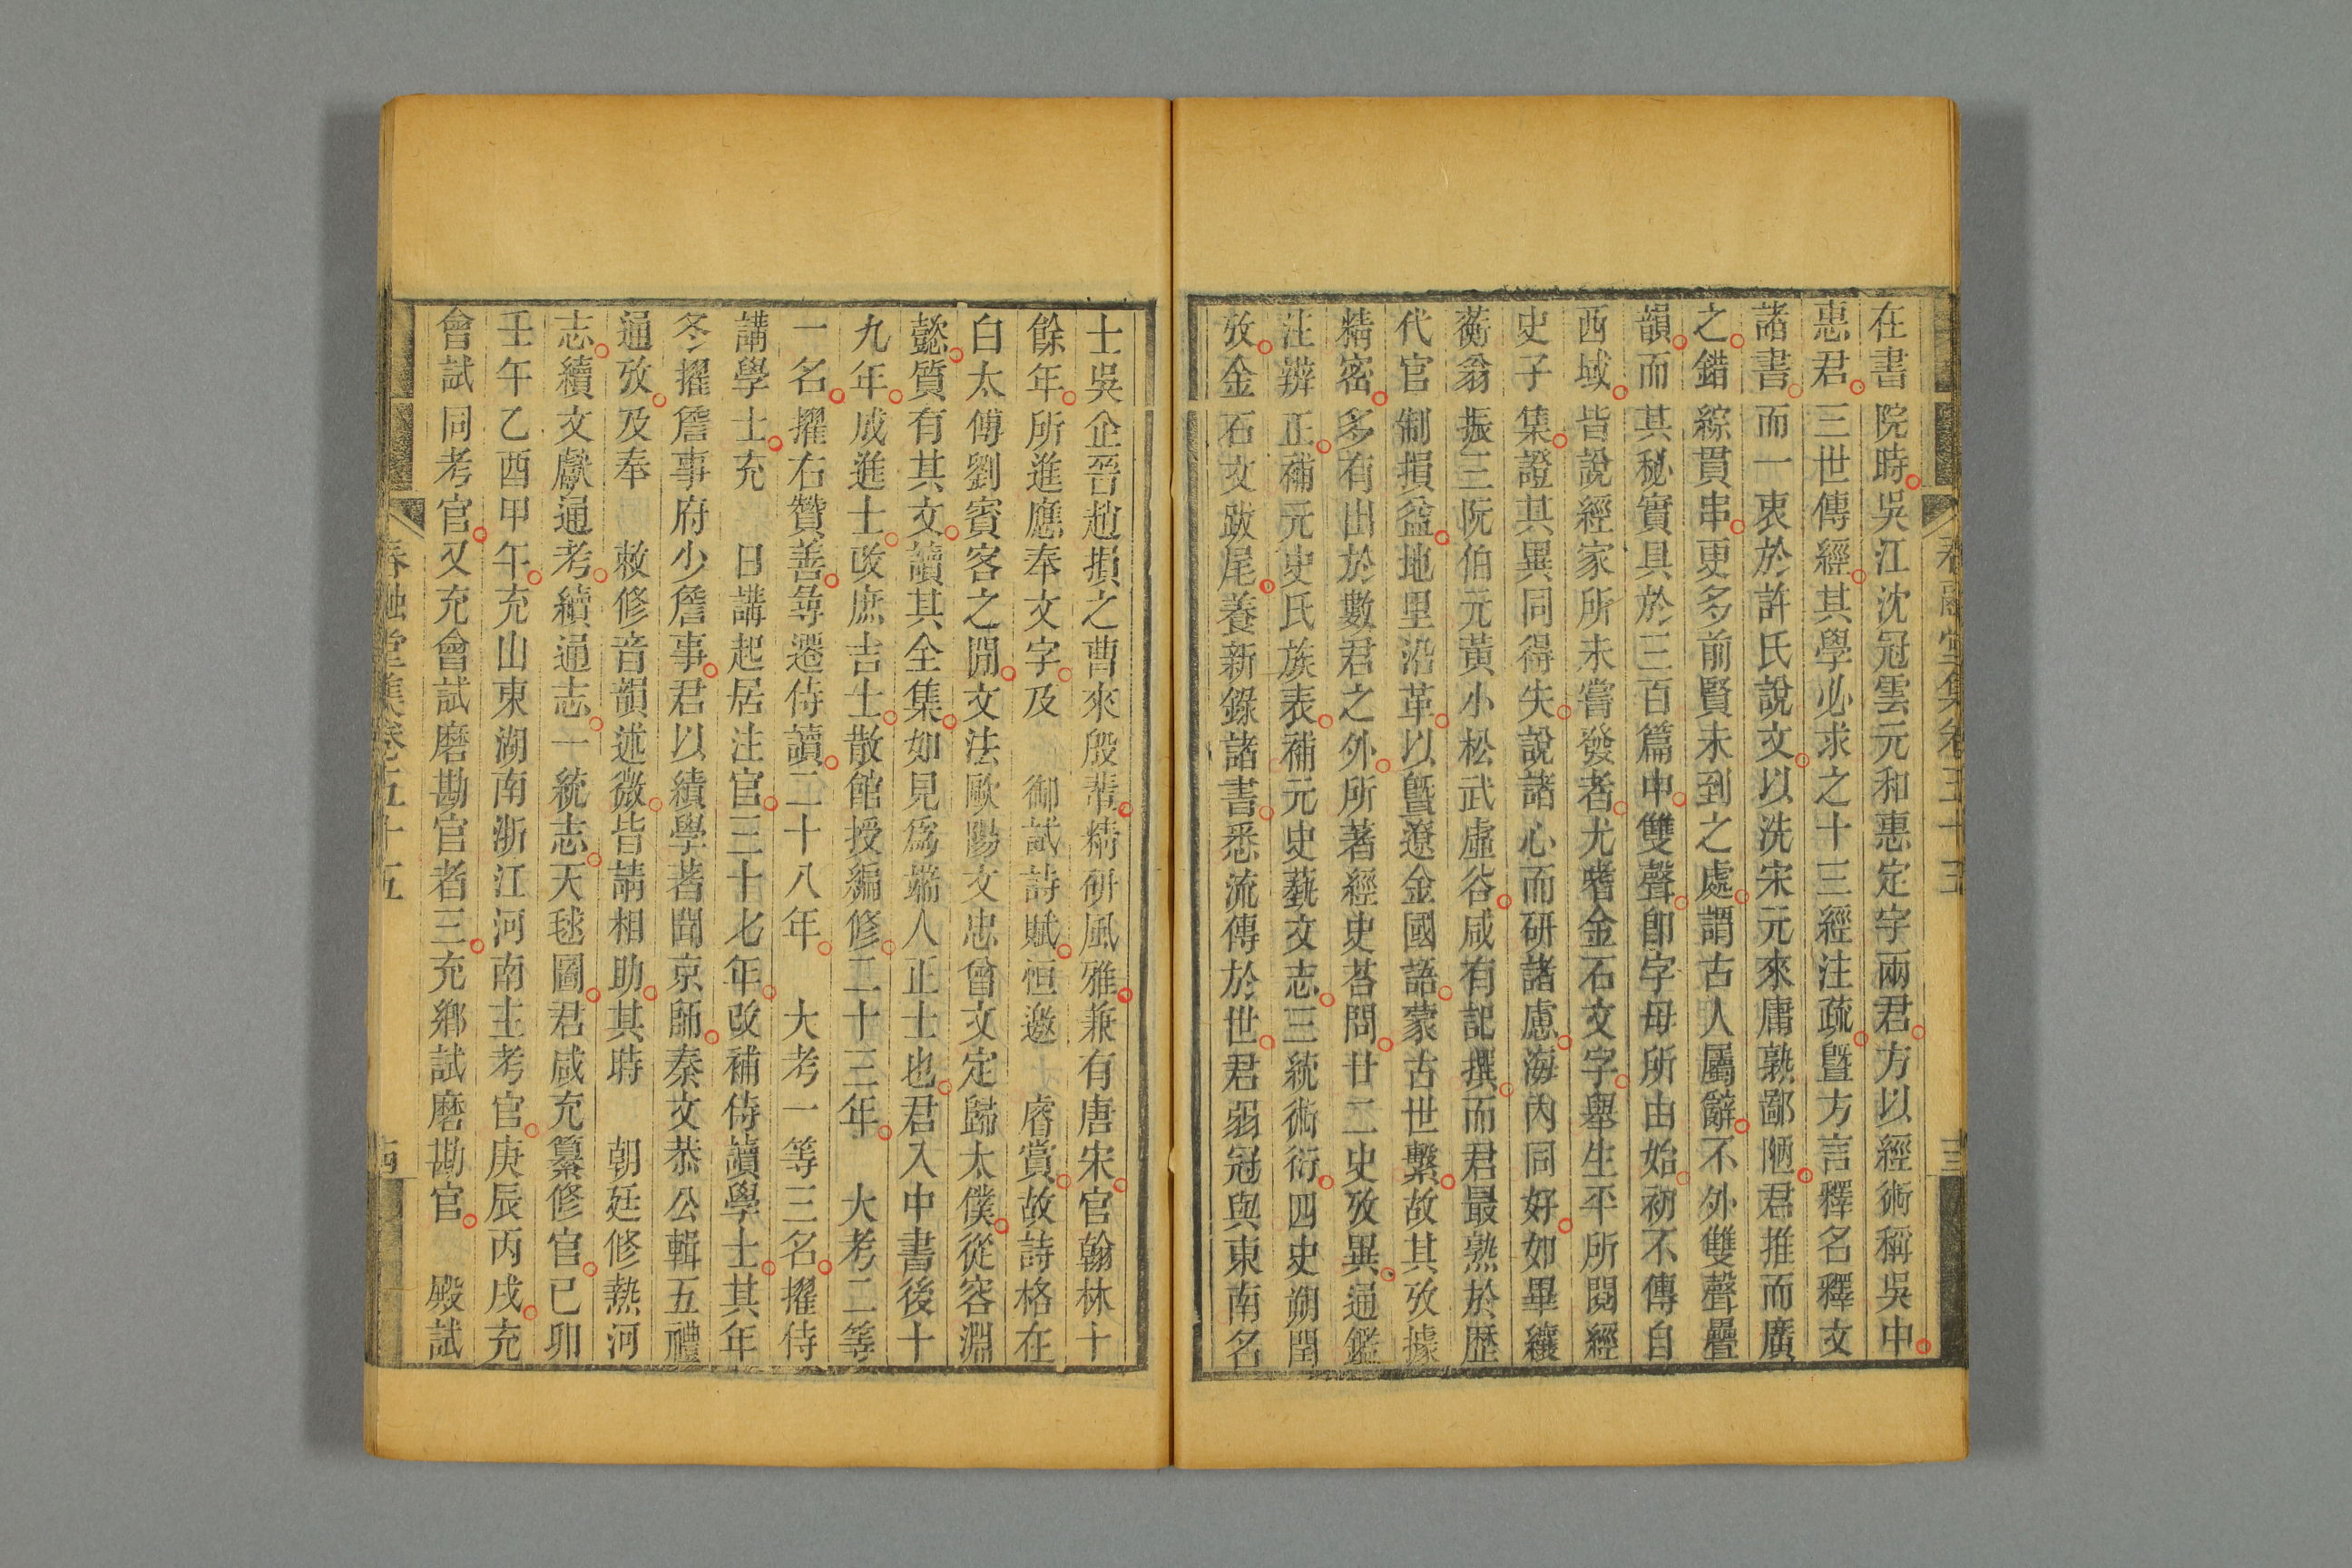 在書院時吳江沈冠雲元和惠定宇兩君方以經術稱吳中
惠君三世傳經其學必求之十三經注疏曁方言釋名釋文
諸書而一衷於許氏說文以洗宋元來庸熟鄙陋君推而廣
之錯綜貫串更多前賢未到之處謂古人屬辭不外雙聲疊
韻而其秘實具於三百篇中雙聲卽字母所由始初不傳自
西域皆說經家所未嘗發者尤嗜金石文字舉生平所閱經
史子集證其異同得失說諸心而硏諸慮海內同好如畢纕
蘅翁振三阮伯元黃小松武虛谷咸有記撰而君最熟於歷
代官制損益地里沿革以曁遼金國語蒙古世繫故其攷據
精密多有出於數君之外所著經史荅問廿二史攷異通鑑
注辨正補元史氏族表補元史藝文志三統術衍四史朔閏
攷金石文跋尾養新錄諸書悉流傳於世君弱冠與東南名
士吳企晉趙損之曹來殷輩精硏風雅兼有唐宋官翰林十
餘年所進應奉文字及 御試詩賦恒邀 睿賞故詩格在
白太傅劉賓客之閒文法歐陽文忠曾文定歸太僕從容淵
懿質有其文讀其全集如見爲端人正士也君入中書後十
九年成進士改庶吉士散館授編修二十三年 大考二等
一名擢右贊善尋遷侍讀二十八年 大考一等三名擢侍
講學士充 日講起居注官三十七年改補侍讀學士其年
冬擢詹事府少詹事君以績學著聞京師秦文恭公輯五禮
通攷及奉 敕修音韻述微皆請相助其時 朝廷修熱河
志續文獻通考續通志一統志天毬圖君咸充纂修官己卯
壬午乙酉甲午充山東湖南浙江河南主考官庚辰丙戌充
會試同考官又充會試磨勘官者三充鄕試磨勘官 殿試
春融堂集卷五十五